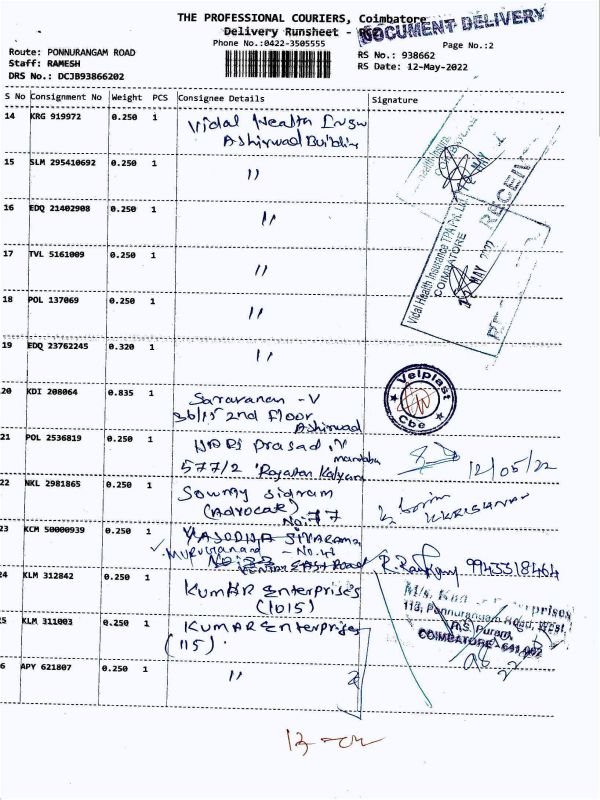 THE PROFESSIONAL COURIERS, Coimbatore
Delivery Runsheet -
DOCUMENT DELIVERY
Phone No.:0422-3505555
Page No.:2
Route: PONNURANGAM ROAD
Staff: RAMESH
DRS No.: DCJB93866202
RS No.: 938662
RS Date: 12-May-2022
S No Consignment No Weight PCS Consignee Details Signature
14 KRG 919972 0.250 1 Vidal Health
Ashirwad
15 SLM 295410692 0.250 1 "
16 EDQ 21402908 0.250 1 "
17 TVL 5161009 0.250 1 "
18 POL 137069 0.250 1 "
19 EDQ 23762245 0.320 1 "
Vidal Health Insurance TPA Pvt. Ltd
COIMBATORE
MAY
20 KDI 208064 0.835 1 Saravanan - V
36/15 2nd floor
Ashirwad
Velplast
Cbe
21 POL 2536819 0.250 1 Prasad . V
577/2
12/05/22
22 NKL 2981865 0.250 1 Sowmy
(Advocate)
No: 77
23 KCM 50000939 0.250 1 YASODHA SIVARAMA
- No.41
East Road
9943318464
24 KLM 312842 0.250 1 KUMAR Enterprises
(1015)
25 KLM 311003 0.250 1 KUMAR Enterprises
(115).
M/s.
113, Ponnurangam Road, West,
R.S. Puram,
COIMBATORE - 641 002
26 APY 621807 0.250 1 "